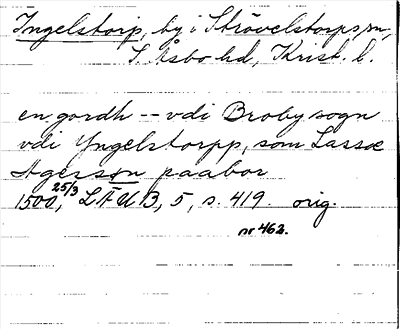 Ingelstorp, by i Strövelstorps sn,
S. Åsbo hd, Krist. l.
en gordh -- vdi Broby sogn
vdi Yngelstorpp, som Lassæ
Agersøn paabor
1500 25/3, LÄUB, 5, s. 419. orig.
nr 462.